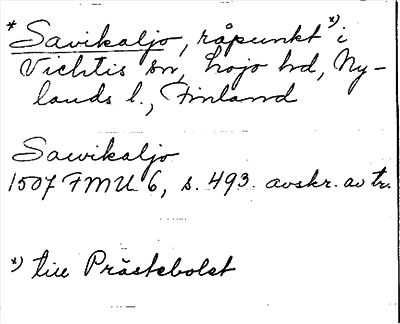 * Savikaljo, råpunkt *) i
Vichtis sn, Lojo hd, Ny-
lands l., Finland
Sawikaljo
1507 FMU 6, s. 493. avskr. av tr.
*) till Prästebolet